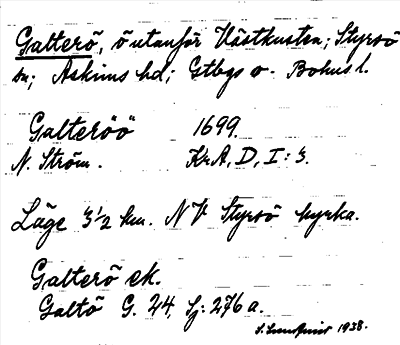 Galterö, ö utanför Västkusten; Styrsö
sn; Askims hd; Gtbgs o. Bohusl.
Galteröö 1699.
N. Ström. KrA, D, I: 3.
Läge 3 1/2 km. NV Styrsö kyrka.
Galterö ek.
Galtö G. 24, Sj: 276 a.
S. Lundqvist 1938.